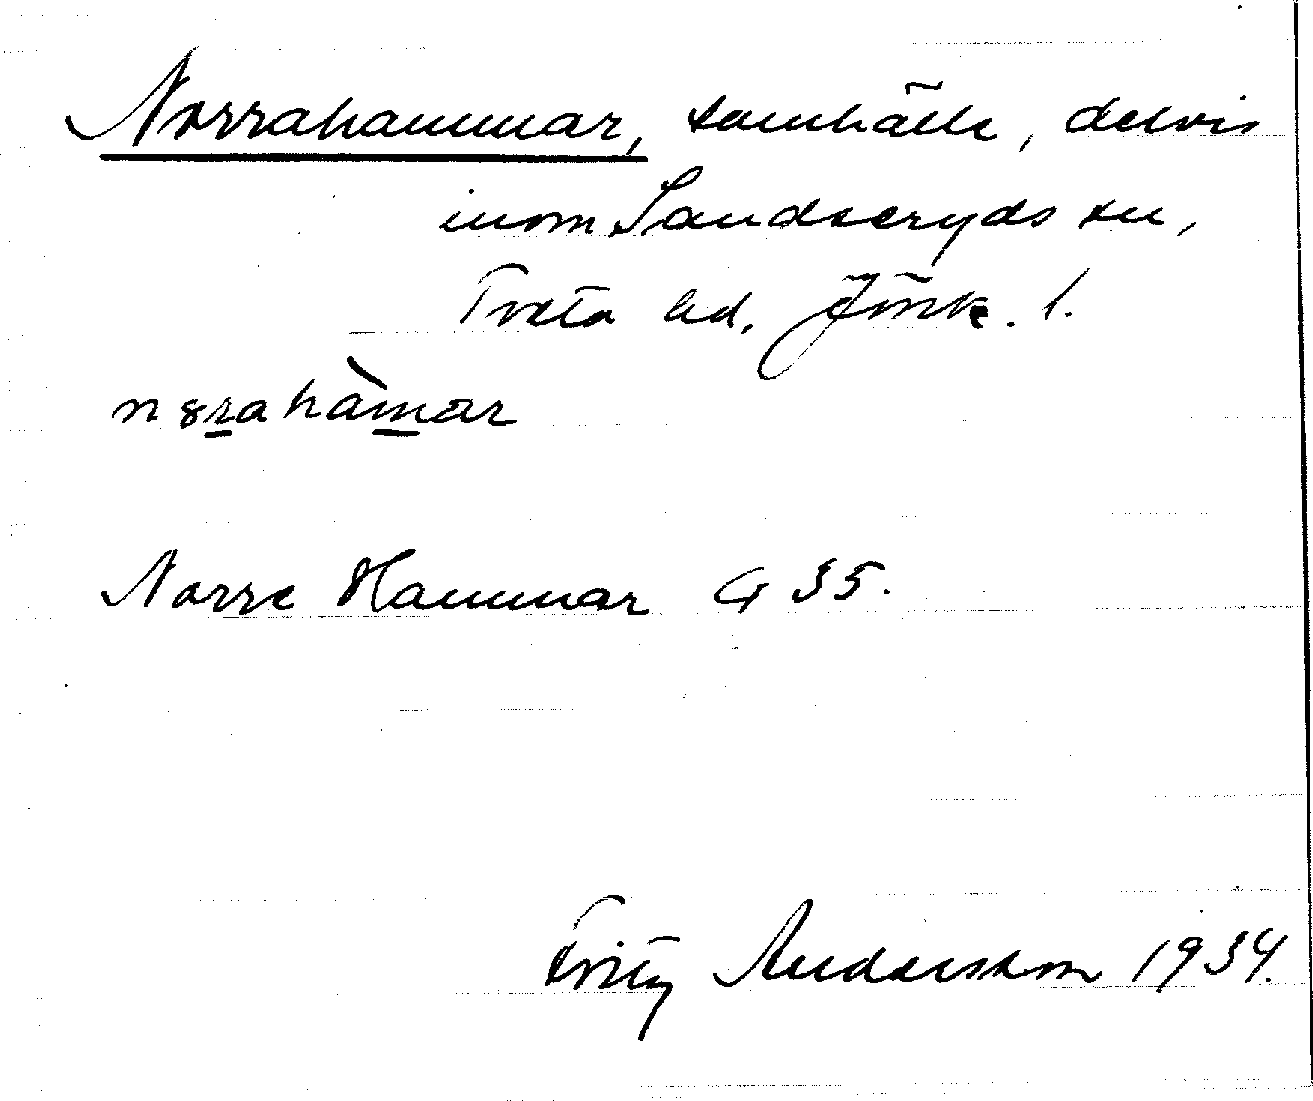 Norrahammar, samhälle, delvis
inom Sandseryds sn,
Tveta hd. Jönk. l.
n8rahàmar
Norre Hammar G 35.
Fritz Andersson 1934.